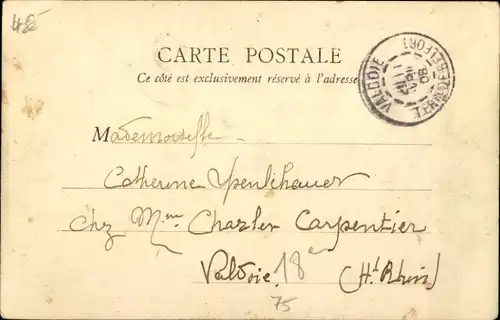 CARTE POSTALE
Ce côté est exclusivement réservé à l'adresse
VALDOIE
BELFORT
Mademoiselle
Catherine
chez Mme Charles Carpentier
Valdoie 18e (Ht. Rhin)
75